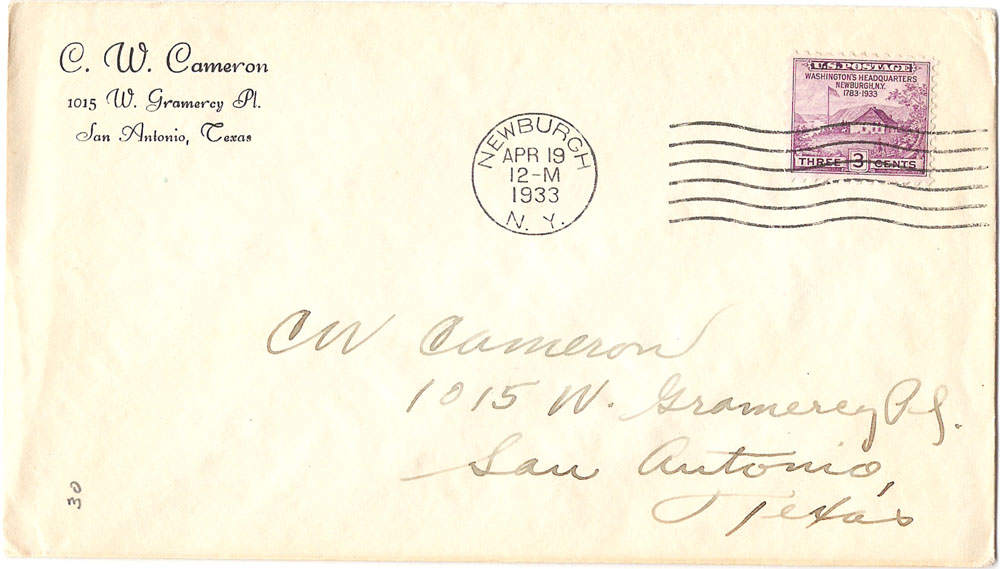 C. W. Cameron
1015 W. Gramercy Pl.
San Antonio, Texas
NEWBURGH
APR 19
12-M
1933
N. Y.
U.S. POSTAGE
WASHINGTON'S HEADQUARTERS
NEWBURGH, N.Y.
1783-1933
THREE 3 CENTS
CW Cameron
1015 W. Gramercy Pl.
San Antonio,
Texas
30